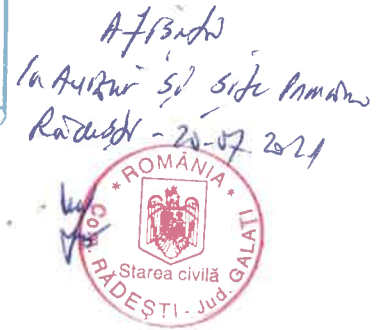 Afișată
la Avizier și site Primăria
Rădești - 20-07 2021
* ROMÂNIA *
Starea civilă
Com. RĂDEȘTI - Jud. GALAȚI